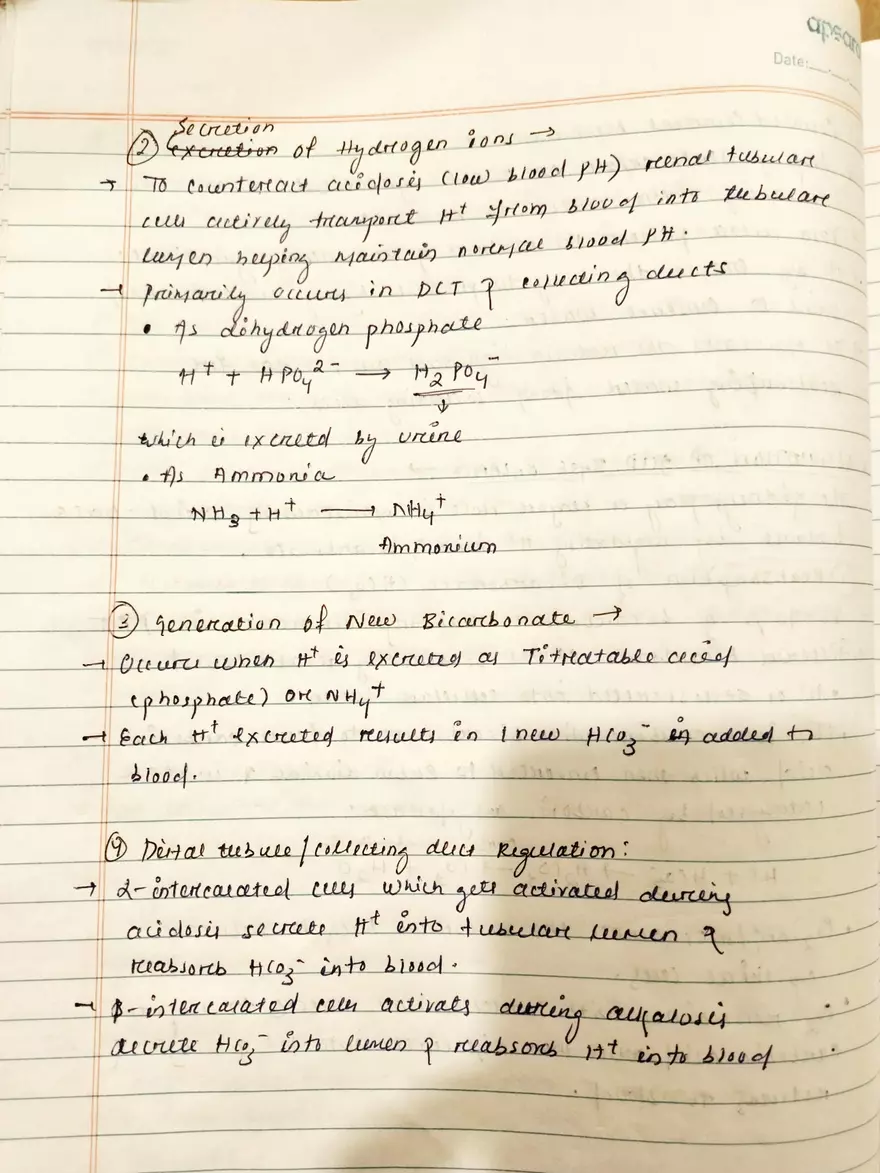 apsara
Date:
Secretion
② excretion of Hydrogen ions →
→ To counteract acidosis (low blood pH) renal tubular
cells actively transport H⁺ from blood into tubular
lumen helping maintain normal blood pH.
→ Primarily occurs in DCT & collecting ducts
• As dihydrogen phosphate
H⁺ + HPO₄²⁻ → H₂PO₄⁻
↓
which is excretd by urine
• As Ammonia
NH₃ + H⁺ → NH₄⁺
Ammonium
③ Generation of New Bicarbonate →
→ Occurs when H⁺ is excreted as Titratable acid
(phosphate) or NH₄⁺
→ Each H⁺ excreted results in 1 new HCO₃⁻ added to
blood.
④ Distal tubule / collecting duct Regulation:
→ α-intercalated cells which gets activated during
acidosis secrete H⁺ into tubular lumen &
reabsorb HCO₃⁻ into blood.
→ β-intercalated cells activats during alkalosis
secrete HCO₃⁻ into lumen & reabsorb H⁺ into blood